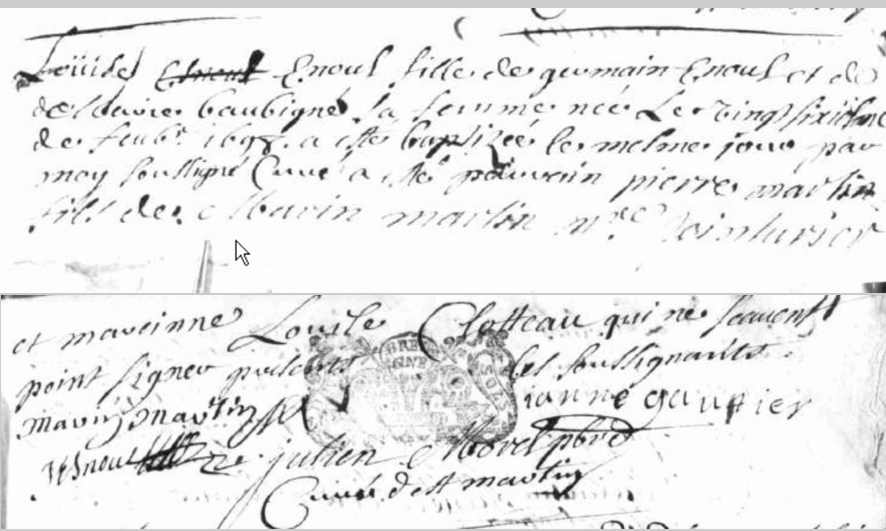 Louise Esnoul Esnoul fille de germain Esnoul et de
de Marie baubigné sa femme née le vingt sixiesme
de feubr 1698 a esté baptizée le mesme jour par
moy soussigné Curé a esté parain pierre martin
fils de Marin martin mre teinturier
et mareinne Louise Clotteau qui ne scauent
point signer presents les soussignants
marin martin janne gautier
Esnoul julien Morel pbre
Curé de st martin